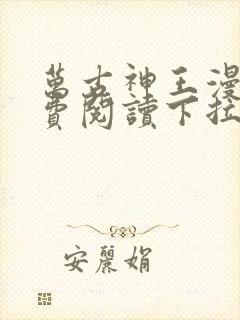 萬古神王漫
費閱讀下拉
安麗娟